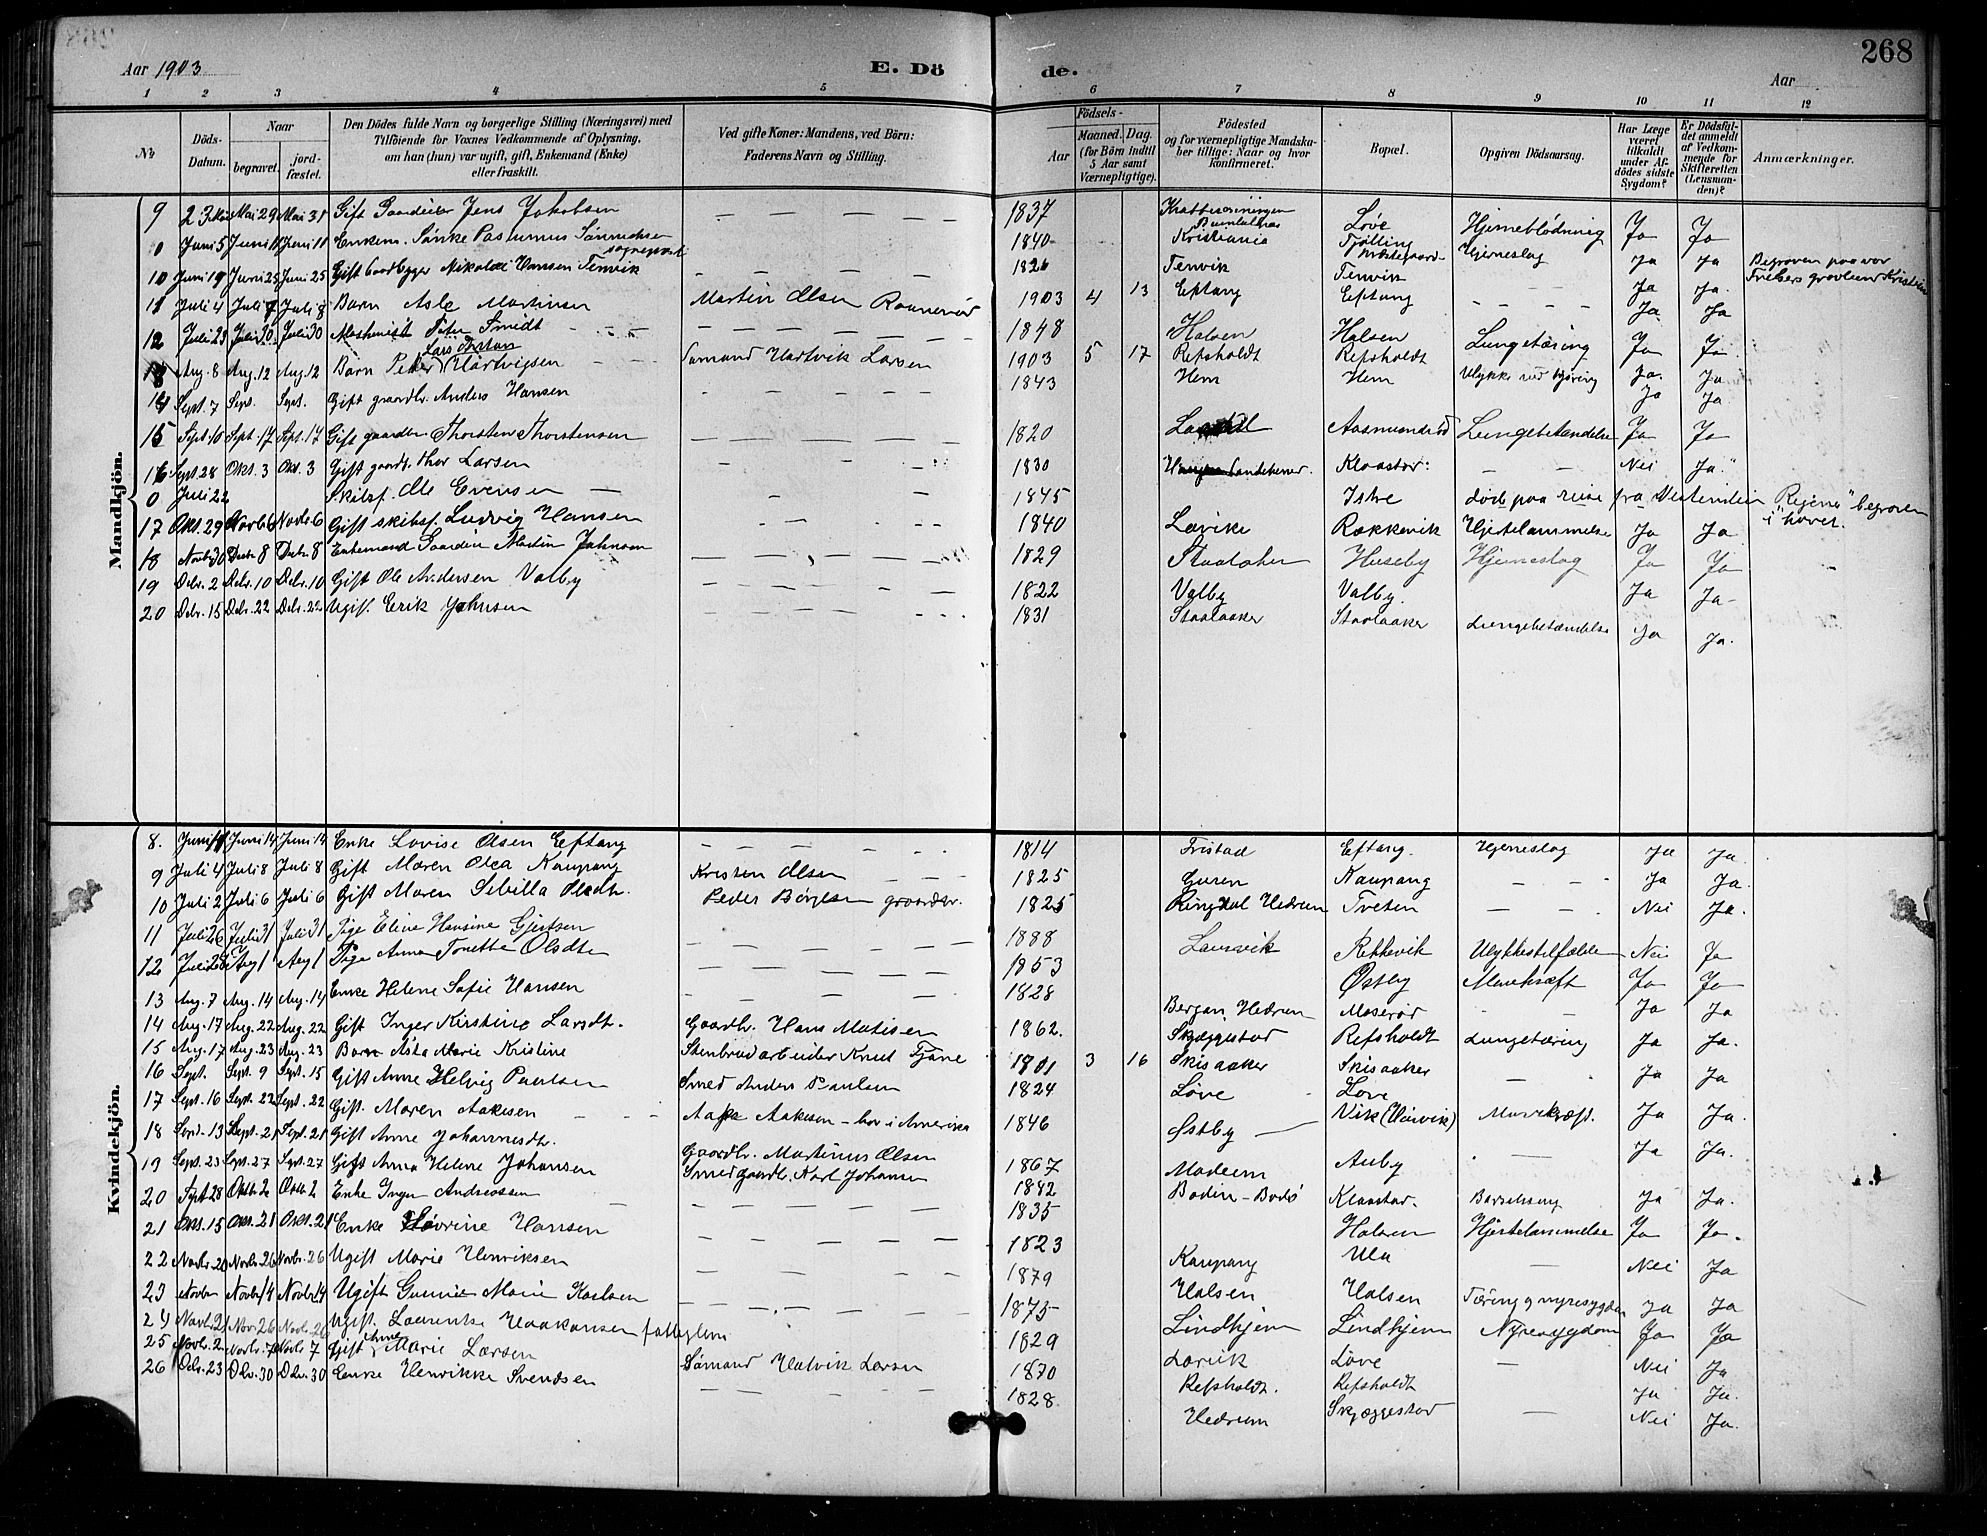 268
Aar 1903
E. Dö de.
Aar
1 2 3 4 5 6 7 8 9 10 11 12
No
Döds-Datum.
Naar
begravet.
jordfæstet.
Den Dödes fulde Navn og borgerlige Stilling (Næringsvei) med Tilföiende for Voxnes Vedkommende af Oplysning, om han (hun) var ugift, gift, Enkemand (Enke) eller fraskilt.
Ved gifte Koner: Mandens, ved Börn: Faderens Navn og Stilling.
Födsels-
Aar
Maaned. Dag.
(for Börn indtil 5 Aar samt Værnepligtige).
Födested og for værnepligtige Mandskaber tillige: Naar og hvor konfirmeret.
Bopæl.
Opgiven Dödsaarsag.
Har Læge været tilkaldt under Afdödes sidste Sygdom?
Er Dödsfaldet anmeldt af Vedkommende for Skifteretten (Lensmanden)?
Anmærkninger.
Mandkjön.
9 23 Mai Mai 29 Mai 31 Gift Gaardeier Jens Jakobsen 1837 Løve Hjerneblödning Ja Ja
0 Juni 5 Juni 11 Juni 11 Enkem. Sönke Rasmus Sönnichsen sogneprest 1840 Kristiania Tjølling Præstegaard Hjerneslag Ja Ja Begraven paa vor Frelsers gravlund Kristiania
10 Juni 19 Juni 25 Juni 25 Gift Gaardbyger Nikolai Hansen Tenvik 1826 Tenvik Tenvik Ja Ja.
11 Juli 4 Juli 7 Juli 8 Barn Asle Martinsen Martin Olsen Raanerød 1903 4 13 Eftang Eftang Ja. Ja
12 Juli 23 Juli 30 Juli 30 Maskinist Peter Smidt 1848 Halsen Halsen Lungetæring Ja Ja.
13 Aug. 8 Aug. 12 Aug. 12 Barn Peder Lars Anton Hartvigsen Sømand Hartvik Larsen 1903 5 17 Refsholdt Refsholdt Ja. Ja
14 Sept. 7 Sept. Sept. Gift gaardbr. Anders Hansen 1843 Hem Hem Ulykke ved kjøring Ja Ja
15 Sept. 10 Sept. 17 Sept. 17 Gift gaardbr Thorsten Thorstensen 1820 Aasmundrød Lungebetændelse Ja Ja
16 Sept. 28 Okt. 3 Okt. 3 Gift gaardb. Thor Larsen 1830 Sandeherred. Klaastad: Nei Ja.
0 Juli 22 Skibsf. Ole Evensen 1845 Istre død paa reise fra Vestindien "Regina" begraven i havet.
17 Okt. 29 Novbr 6 Novbr 6 Gift skibsf. Ludvig Hansen 1840 Larvik Rækkevik Hjertelammelse Ja Ja
18 Novbr 30 Decbr 8 Decbr 8 Enkemand Gaardm Martin Johnsen 1829 Staalaker Huseby Hjerneslag Ja Ja
19 Decbr. 2 Decbr. 10 Decbr. 10 Gift Ole Andersen Valby 1822 Valby Valby. Ja Ja
20 Decbr. 15 Decbr. 22 Decbr. 22 Ugift. Erik Johnsen 1831 Staalaaker Staalaaker Lungebetændelse Ja Ja.
Kvindekjön.
8. Juni Juni 14 Juni 14 Enke Lovise Olsen Eftang 1814 Fristad Eftang. Hjerneslag Ja Ja.
9 Juli 4 Juli 8 Juli 8 Gift Maren Olea Kaupang Kristian Olsen 1825 Guren Kaupang Ja Ja.
10 Juli 2 Juli 6 Juli 6 Gift Maren Sibilla Olsdtr. Peder Børgesen gaardbr. 1825 Ringdal Hedrum Tveten Nei Ja.
11 Juli 26 Juli 31 Juli 31 Pige Eline Hansine Gjertsen 1888 Laurvik Rekkevik Ulykkestilfælde Nei Ja
12 Juli 28 Aug 1 Aug 1 Pige Anna Tonette Olsdtr 1853 Østby Mavekræft Ja Ja
13 Aug. 7 Aug. 14 Aug. 14 Enke Helene Sofie Hansen 1828 Bergan, Hedrum Moserød Ja Ja
14 Aug. 17 Aug. 22 Aug. 22 Gift Inger Kirstine Larsdtr. Gaardbr. Hans Matisen 1862. Skjeggestad Refsholdt Lungetæring Ja Ja.
15 Aug. 17 Aug. 23 Aug. 23 Barn Asta Marie Kristine Stenbrudarbeider Knut Fjane 1901 3 16 Skisaaker Skisaaker Ja Ja
16 Sept. Sept. 9 Sept. 15 Gift Anne Helvig Paulsen Smed Anders Paulsen 1824 Løve Løve
17 Sept. 16 Sept. 22 Sept. 22 Gift. Maren Aakesen Aake Aakesen – bor i Amerika 1846 Østby Vik (Hervik) Mavekræft. Ja Ja.
18 Sept. 13 Sept. 21 Sept. 21 Gift Anne Johannesdtr. Gaardbr. Martinus Olsen 1867 Auby Ja Ja.
19 Sept. 23 Sept. 27 Sept. 27 Gift Anna Helene Johansen Smed gaardbr. Karl Johansen 1842 Bodin – Bodø Klaastad. Barselseng Ja Ja.
20 Sept 28 Oktb. 2 Oktb 2 Enke Inger Andreassen 1835 Halsen Hjertelammelse Ja Ja.
21 Okt. 15 Okt. 21 Okt. 21 Enke Severine Hansen 1823 Kaupang Ula Nei Ja
22 Novbr. 20 Novbr. 26 Novbr. 26 Ugift Marie Henriksen 1879 Halsen Halsen Tæring og nyresygdom Ja Ja
23 Novbr Novbr 14 Novbr 14 Ugift Gunnie Marie Karlsen 1875 Lindhjem Lindhjem Nyresygdom Ja Ja
24 Novbr. 21 Nov. 26 Novbr. 26 Ugift. Laurentse Haakonsen fattiglem 1829 Larvik Løve Nei Ja
25 Novbr. 2 Novbr. 7 Novbr 7 Gift Anne Marie Larsen Sømand Hartvik Larsen 1870 Refsholdt. Refsholdt Ja Ja.
26 Decbr. 23 Dcbr. 30 Dcbr. 30 Enke Henrikke Svendsen 1828 Hedrum Skjeggestad Nei Ja.